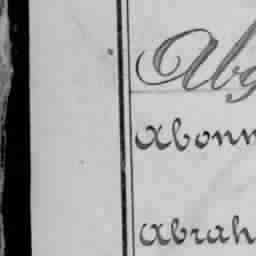 Abg
Abonn
Abrah